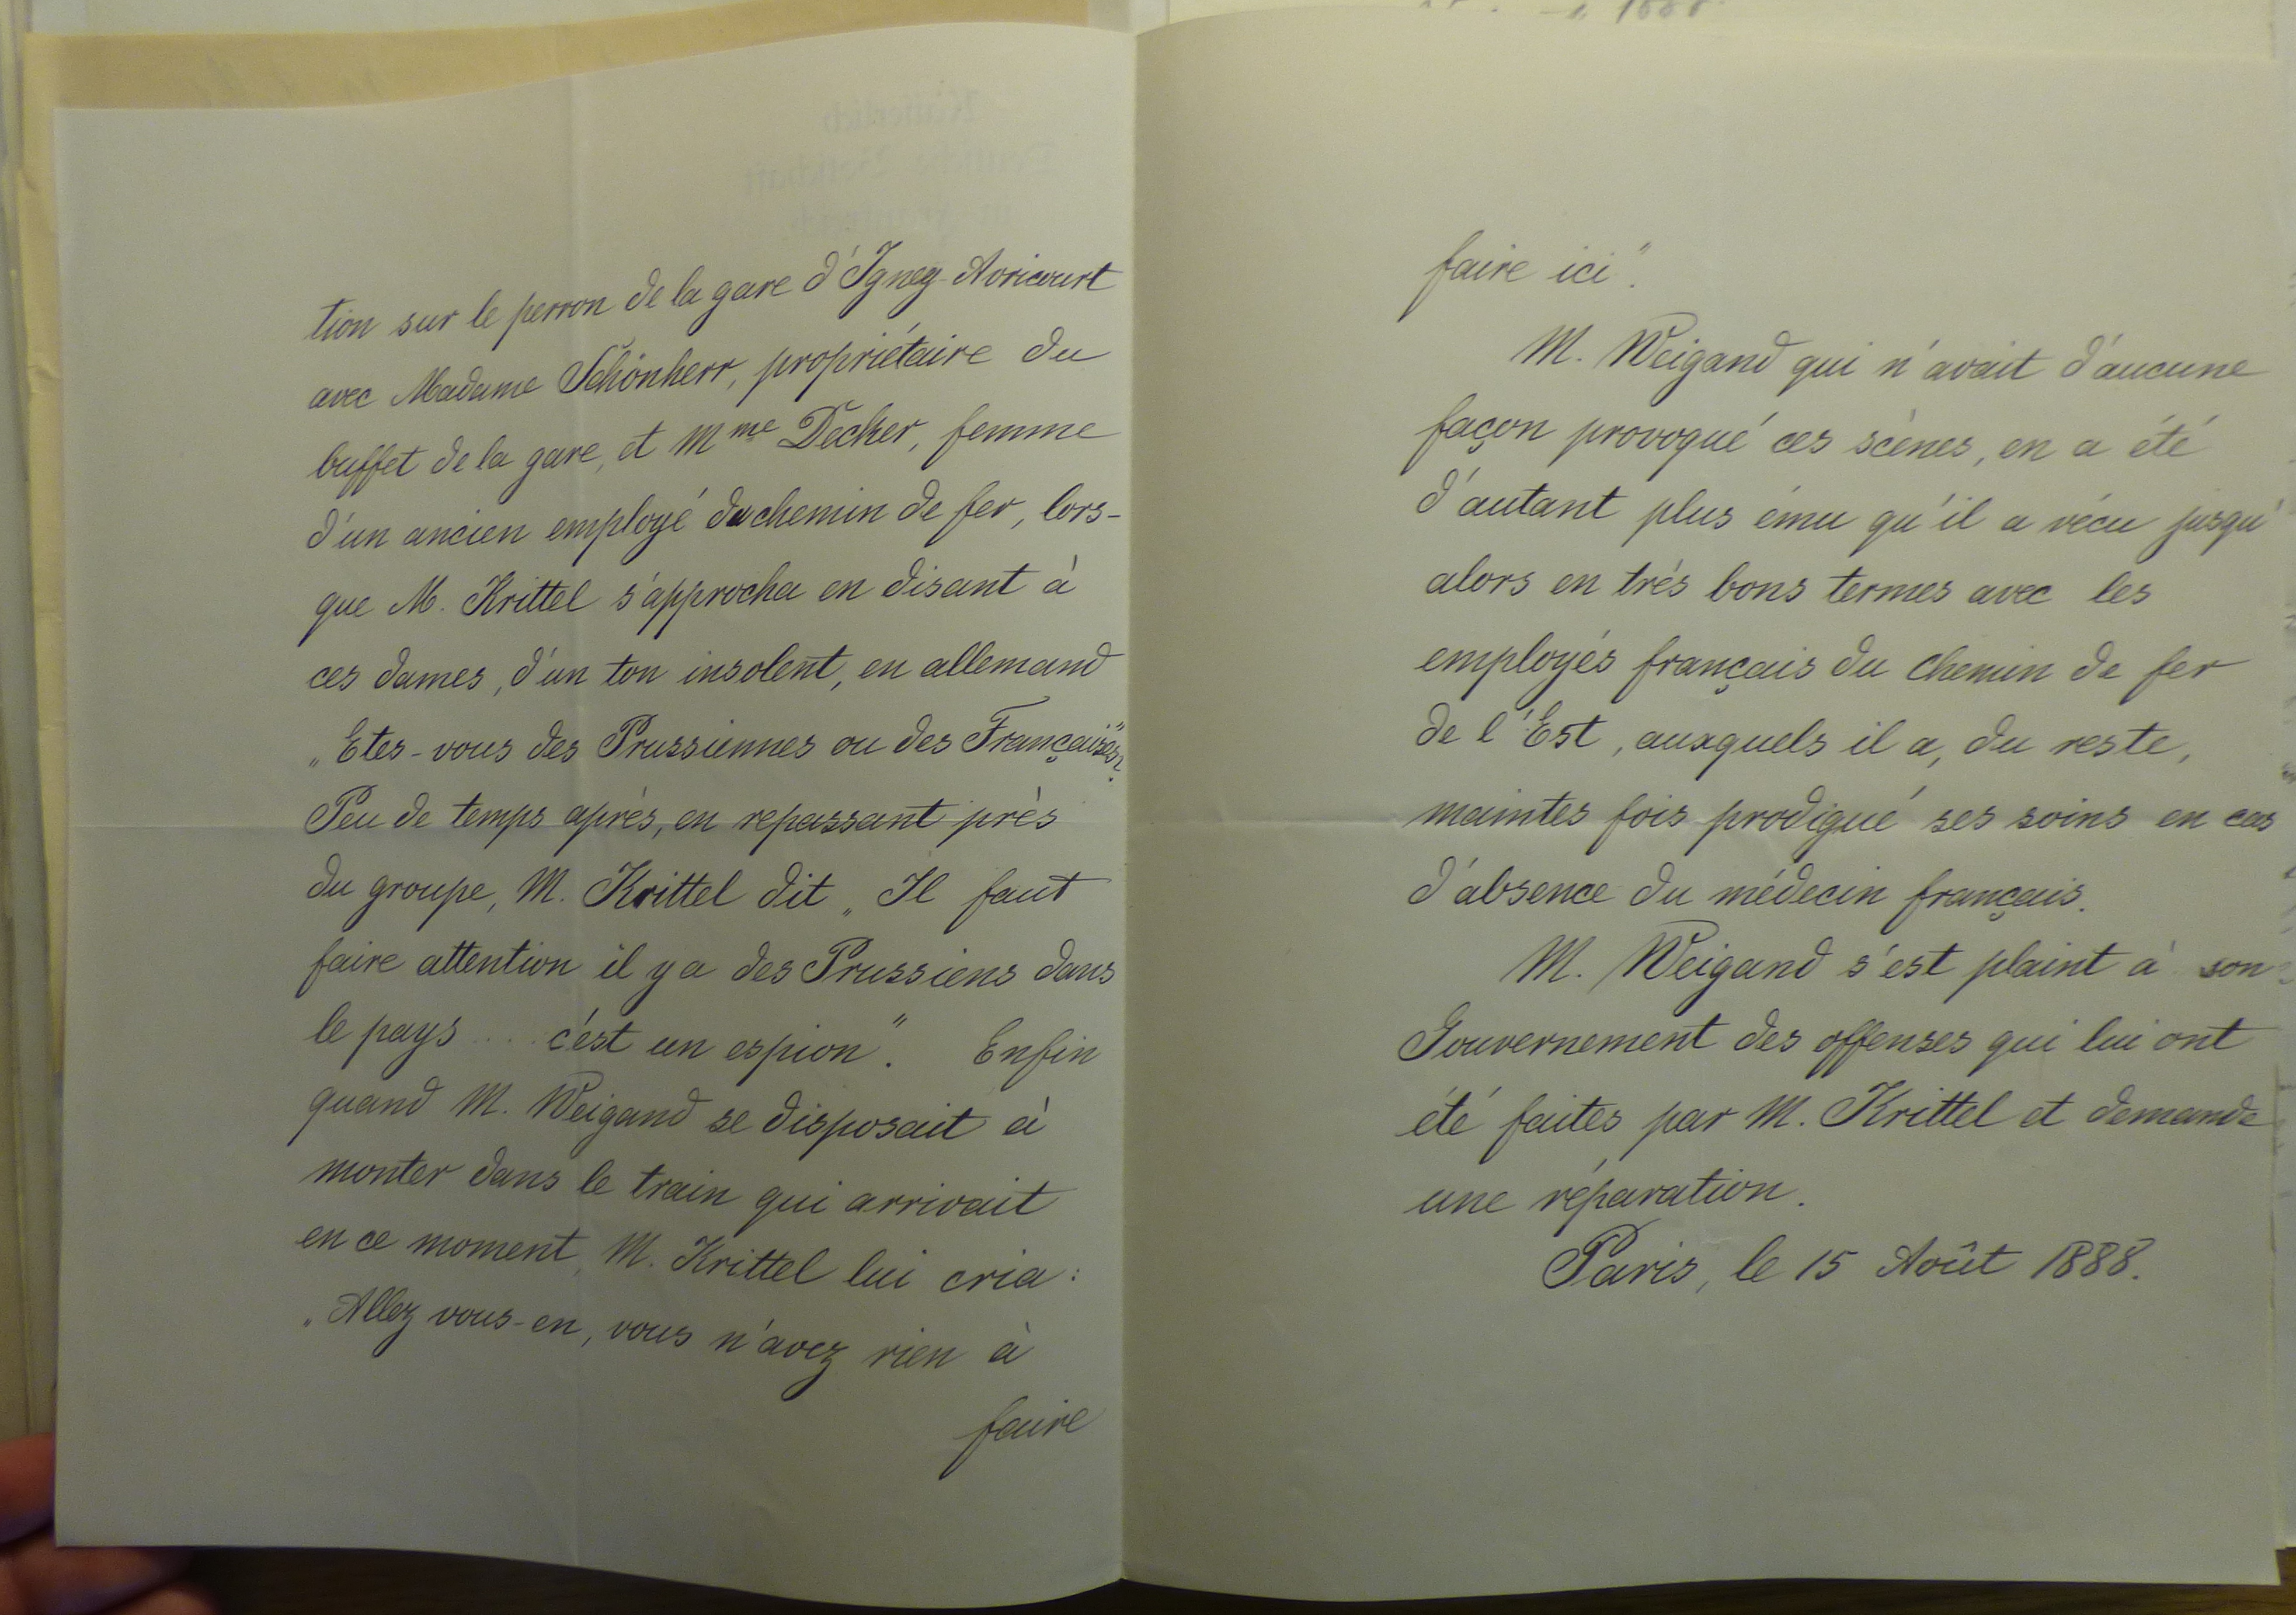 tion sur le perron de la gare d'Igney-Avricourt
avec Madame Schönherr, propriétaire du
buffet de la gare, et Mme Decker, femme
d'un ancien employé du chemin de fer, lors-
que M. Krittel s'approcha en disant à
ces dames, d'un ton insolent, en allemand
„Etes-vous des Prussiennes ou des Françaises"?
Peu de temps après, en repassant près
du groupe, M. Krittel dit „Il faut
faire attention il y a des Prussiens dans
le pays ... c'est un espion". Enfin
quand M. Weigand se disposait à
monter dans le train qui arrivait
en ce moment, M. Krittel lui cria:
„Allez vous-en, vous n'avez rien à
faire
faire ici".
M. Weigand qui n'avait d'aucune
façon provoqué ces scènes, en a été
d'autant plus ému qu'il a vécu jusqu'
alors en très bons termes avec les
employés français du chemin de fer
de l'Est, auxquels il a, du reste,
maintes fois prodigué ses soins en cas
d'absence du médecin français.
M. Weigand s'est plaint à son
Gouvernement des offenses qui lui ont
été faites par M. Krittel et demande
une réparation.
Paris, le 15 Août 1888.